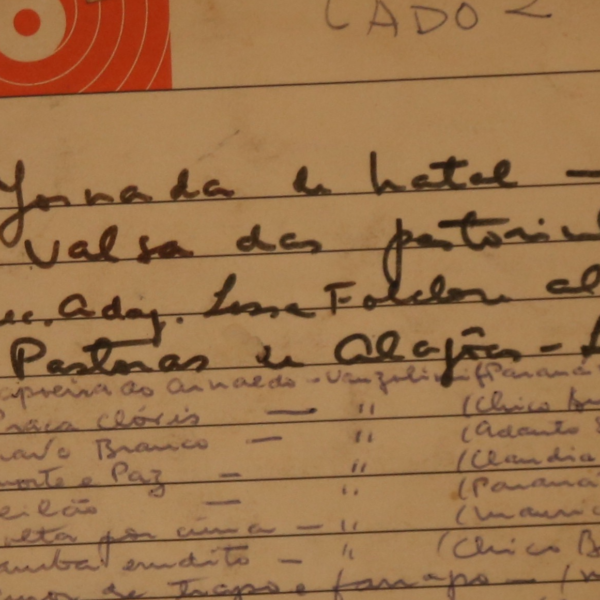 LADO 2
Jornada de Natal -
Valsa das pastorin
ec. Adap. Folclore al
Pastoras de Alagôas -
apoeira do Arnaldo - Vanzolini (Paraná
Praça Clóris — " (Chico Bu
ravo Branco — " (Adauto S
morte e Paz — " (Claudia
eilão — " (Paraná
olta por cima — " (Mauric
amba erudito — " (Chico B
mor de trapo e farrapo — (